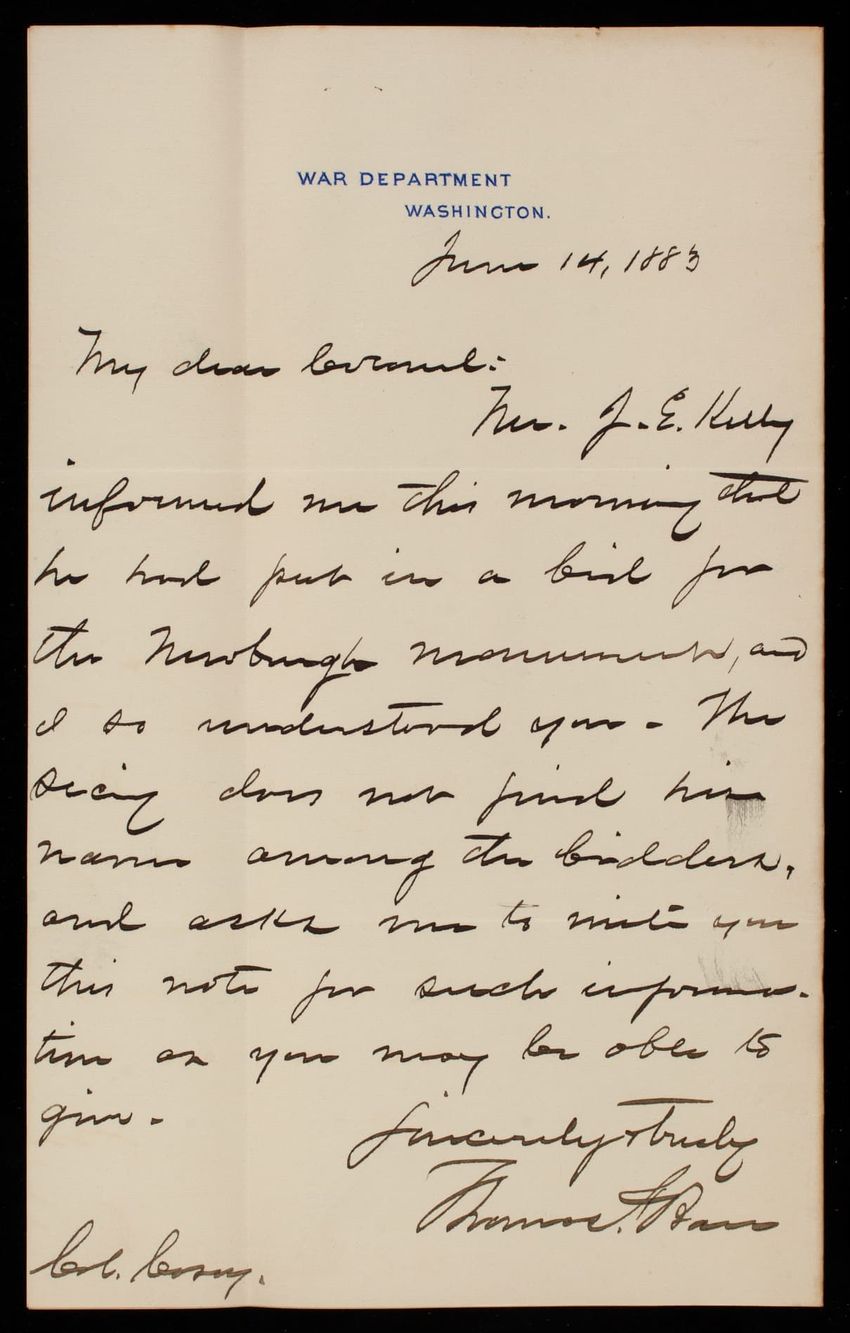 WAR DEPARTMENT
WASHINGTON.
June 14, 1883
My dear Colonel:
Mr. J. E. Kelly
informed me this morning that
he had put in a bid for
the Newburgh monument, and
I so understood you - The
Secy does not find his
name among the bidders,
and asks me to write you
this note for such informa-
tion as you may be able to
give.
Sincerely & truly
Thomas F. Barr
Col. Casey.